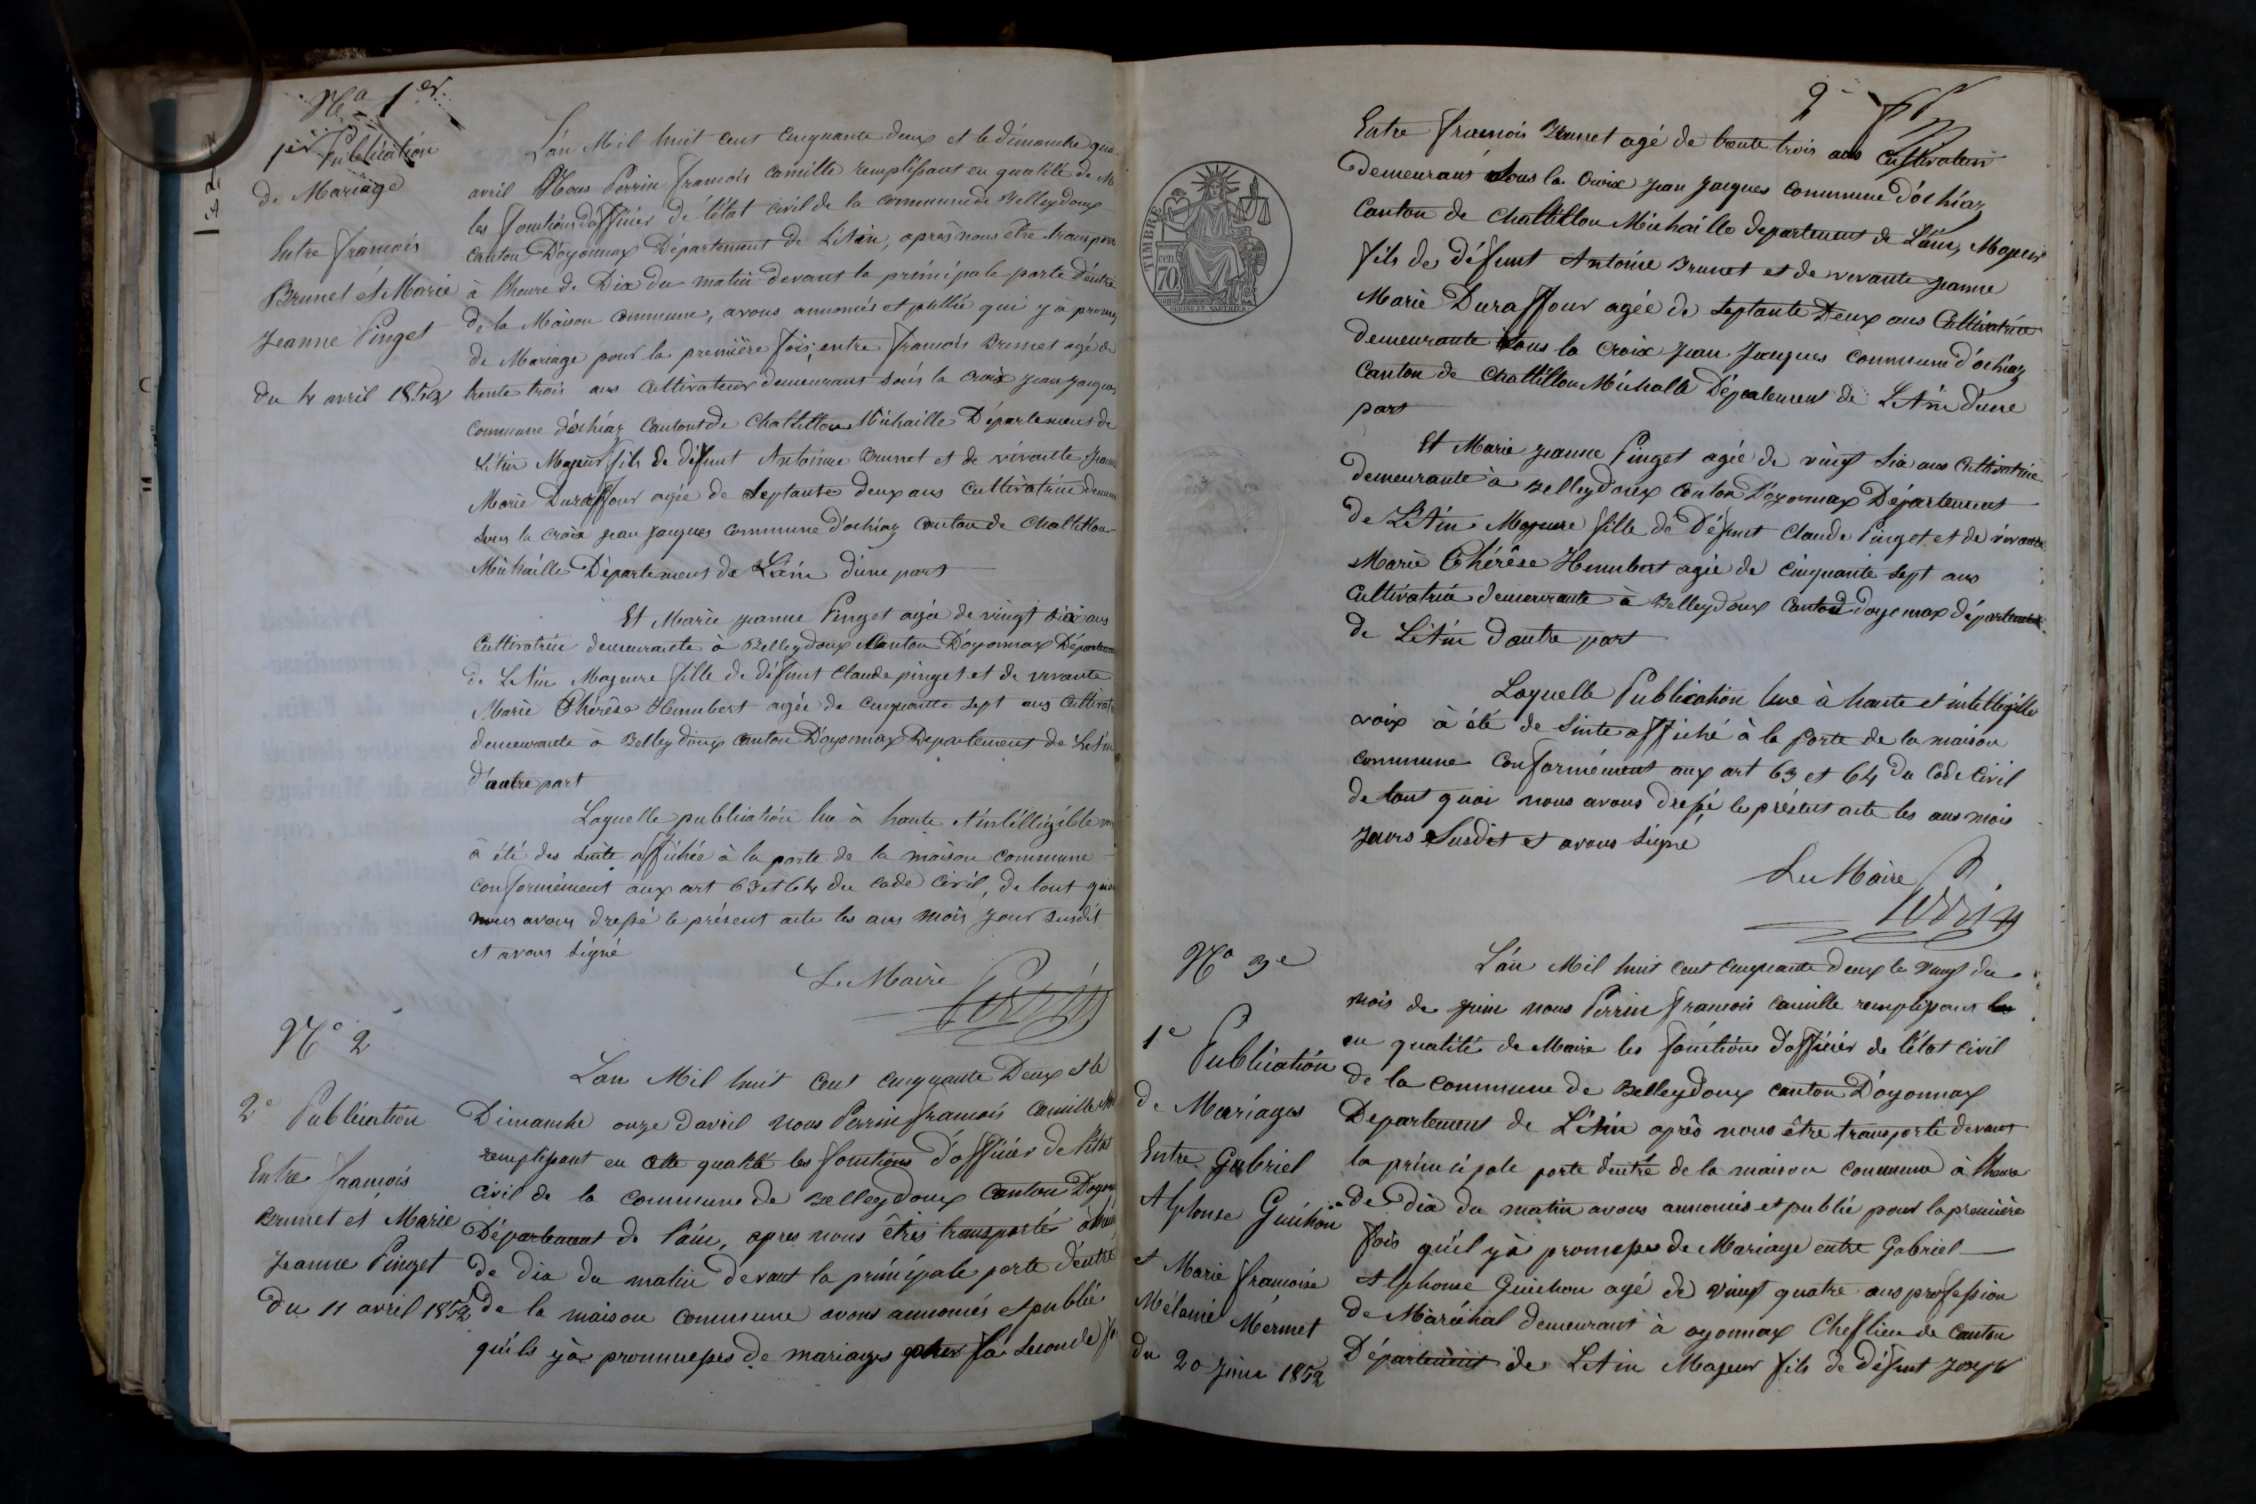 No 1er
1ère Publication
de Mariage
Entre francois
Brunet et Marie
Jeanne Pinget
du 4 avril 1852
L'an Mil huit cent cinquante deux et le dimanche qua
avril Nous Perrin francois camille remplissant en qualité de M
les fonctions d'officier de l'état civil de la commune de Belleydoux
canton D'oyonnax Département de L'Ain, après nous être transpor
à l'heure de Dix du matin devant la principale porte d'entré
de la Maison commune, avons annoncés et publié qui y à promes
de Mariage pour la première fois, entre francois Brunet agé de
trente trois ans cultivateur demeurant sous la croix jean jacques
commune d'ochiaz canton de Chatillon Michaille Département de
L'Ain Majeur fils de défunt Antoine Brunet et de vivante Jeanne
Marie Duraffour agée de Septante deux ans cultivatrice demeu
sous la croix jean jacques commune d'ochiaz canton de Chatillon
Michaille Département de L'ain d'une part
Et Marie jeanne Pinget agée de vingt six ans
Cultivatrice demeurante à Belleydoux Canton D'oyonnax Départem
de L'Ain Majeure fille de défunt Claude pinget et de vivante
Marie Thérèse Humbert agée de cinquante sept ans Cultivat
demeurante à Belleydoux canton D'oyonnax Departement de L'Ain
d'autre part
Laquelle publication lue à haute et intelligible
à été des suite affichée à la porte de la maison commune
conformément aux art 63 et 64 du code civil, de tout quoi
nous avons dressé le présent acte les ans mois jour susdit
et avons signé
Le Maire
Perrin
No 2
2e Publication
Entre françois
Brunet et Marie
Jeanne Pinget
du 11 avril 1852
L'an Mil huit cent cinquante Deux et le
Dimanche onze d'avril nous Perrin francois camille
remplissant en cette qualité les fonctions d'officier de l'état
civil de la commune de Belleydoux Canton D'oyon
Département de l'ain, apres nous êtres transporté
de dix du matin devant la principale porte d'entré
de la maison commune avons annoncés et publié
qu'ils y à promesses de mariages pour la seconde fo
2
Entre francois Brunet agé de trente trois ans cultivateur
demeurant sous la croix jean jacques commune d'ochiaz
Canton de Chatillon Michaille departement de L'ain, Majeur
fils de défunt Antoine Brunet et de vivante jeanne
Marie Duraffour agée de septante Deux ans Cultivatrice
demeurante sous la croix jean jacques commune d'ochiaz
Canton de Chatillon Michaille Département de L'Ain d'une
part
Et Marie jeanne Pinget agée de vingt six ans cultivatrice
demeurante à Belleydoux Canton D'oyonnax Département
de L'Ain Majeure fille de Défunt Claude Pinget et de vivante
Marie Thérèse Humbert agée de cinquante sept ans
Cultivatrice demeurante à Belleydoux Canton d'oyonnax département
de L'Ain d'autre part
Laquelle Publication lue à haute et intelligible
voix à été de suite affiché à la porte de la maison
commune conformément aux art 63 et 64 du code civil
de tout quoi nous avons dressé le présent acte les ans mois
jours susdit et avons signé
Le Maire
Perrin
TIMBRE
70
No 3e
1e
Publication
de Mariages
Entre Gabriel
Alphonse Guichon
et Marie francoise
Mélanie Mermet
du 20 juin 1852
L'an Mil huit cent cinquante deux le vingt du
mois de juin nous Perrin francois camille remplissant
en qualité de Maire les fonctions d'officier de l'état civil
de la commune de Belleydoux canton D'oyonnax
Departement de L'Ain après nous être transporté devant
la principale porte d'entré de la maison commune à l'heure
de dix du matin avons annoncés et publié pour la première
fois qu'il y à promesses de Mariage entre Gabriel
Alphonse Guichon agé de vingt quatre ans profession
de Maréchal demeurant à oyonnax Chef lieu de canton
Département de L'Ain Majeur fils de défunt joseph